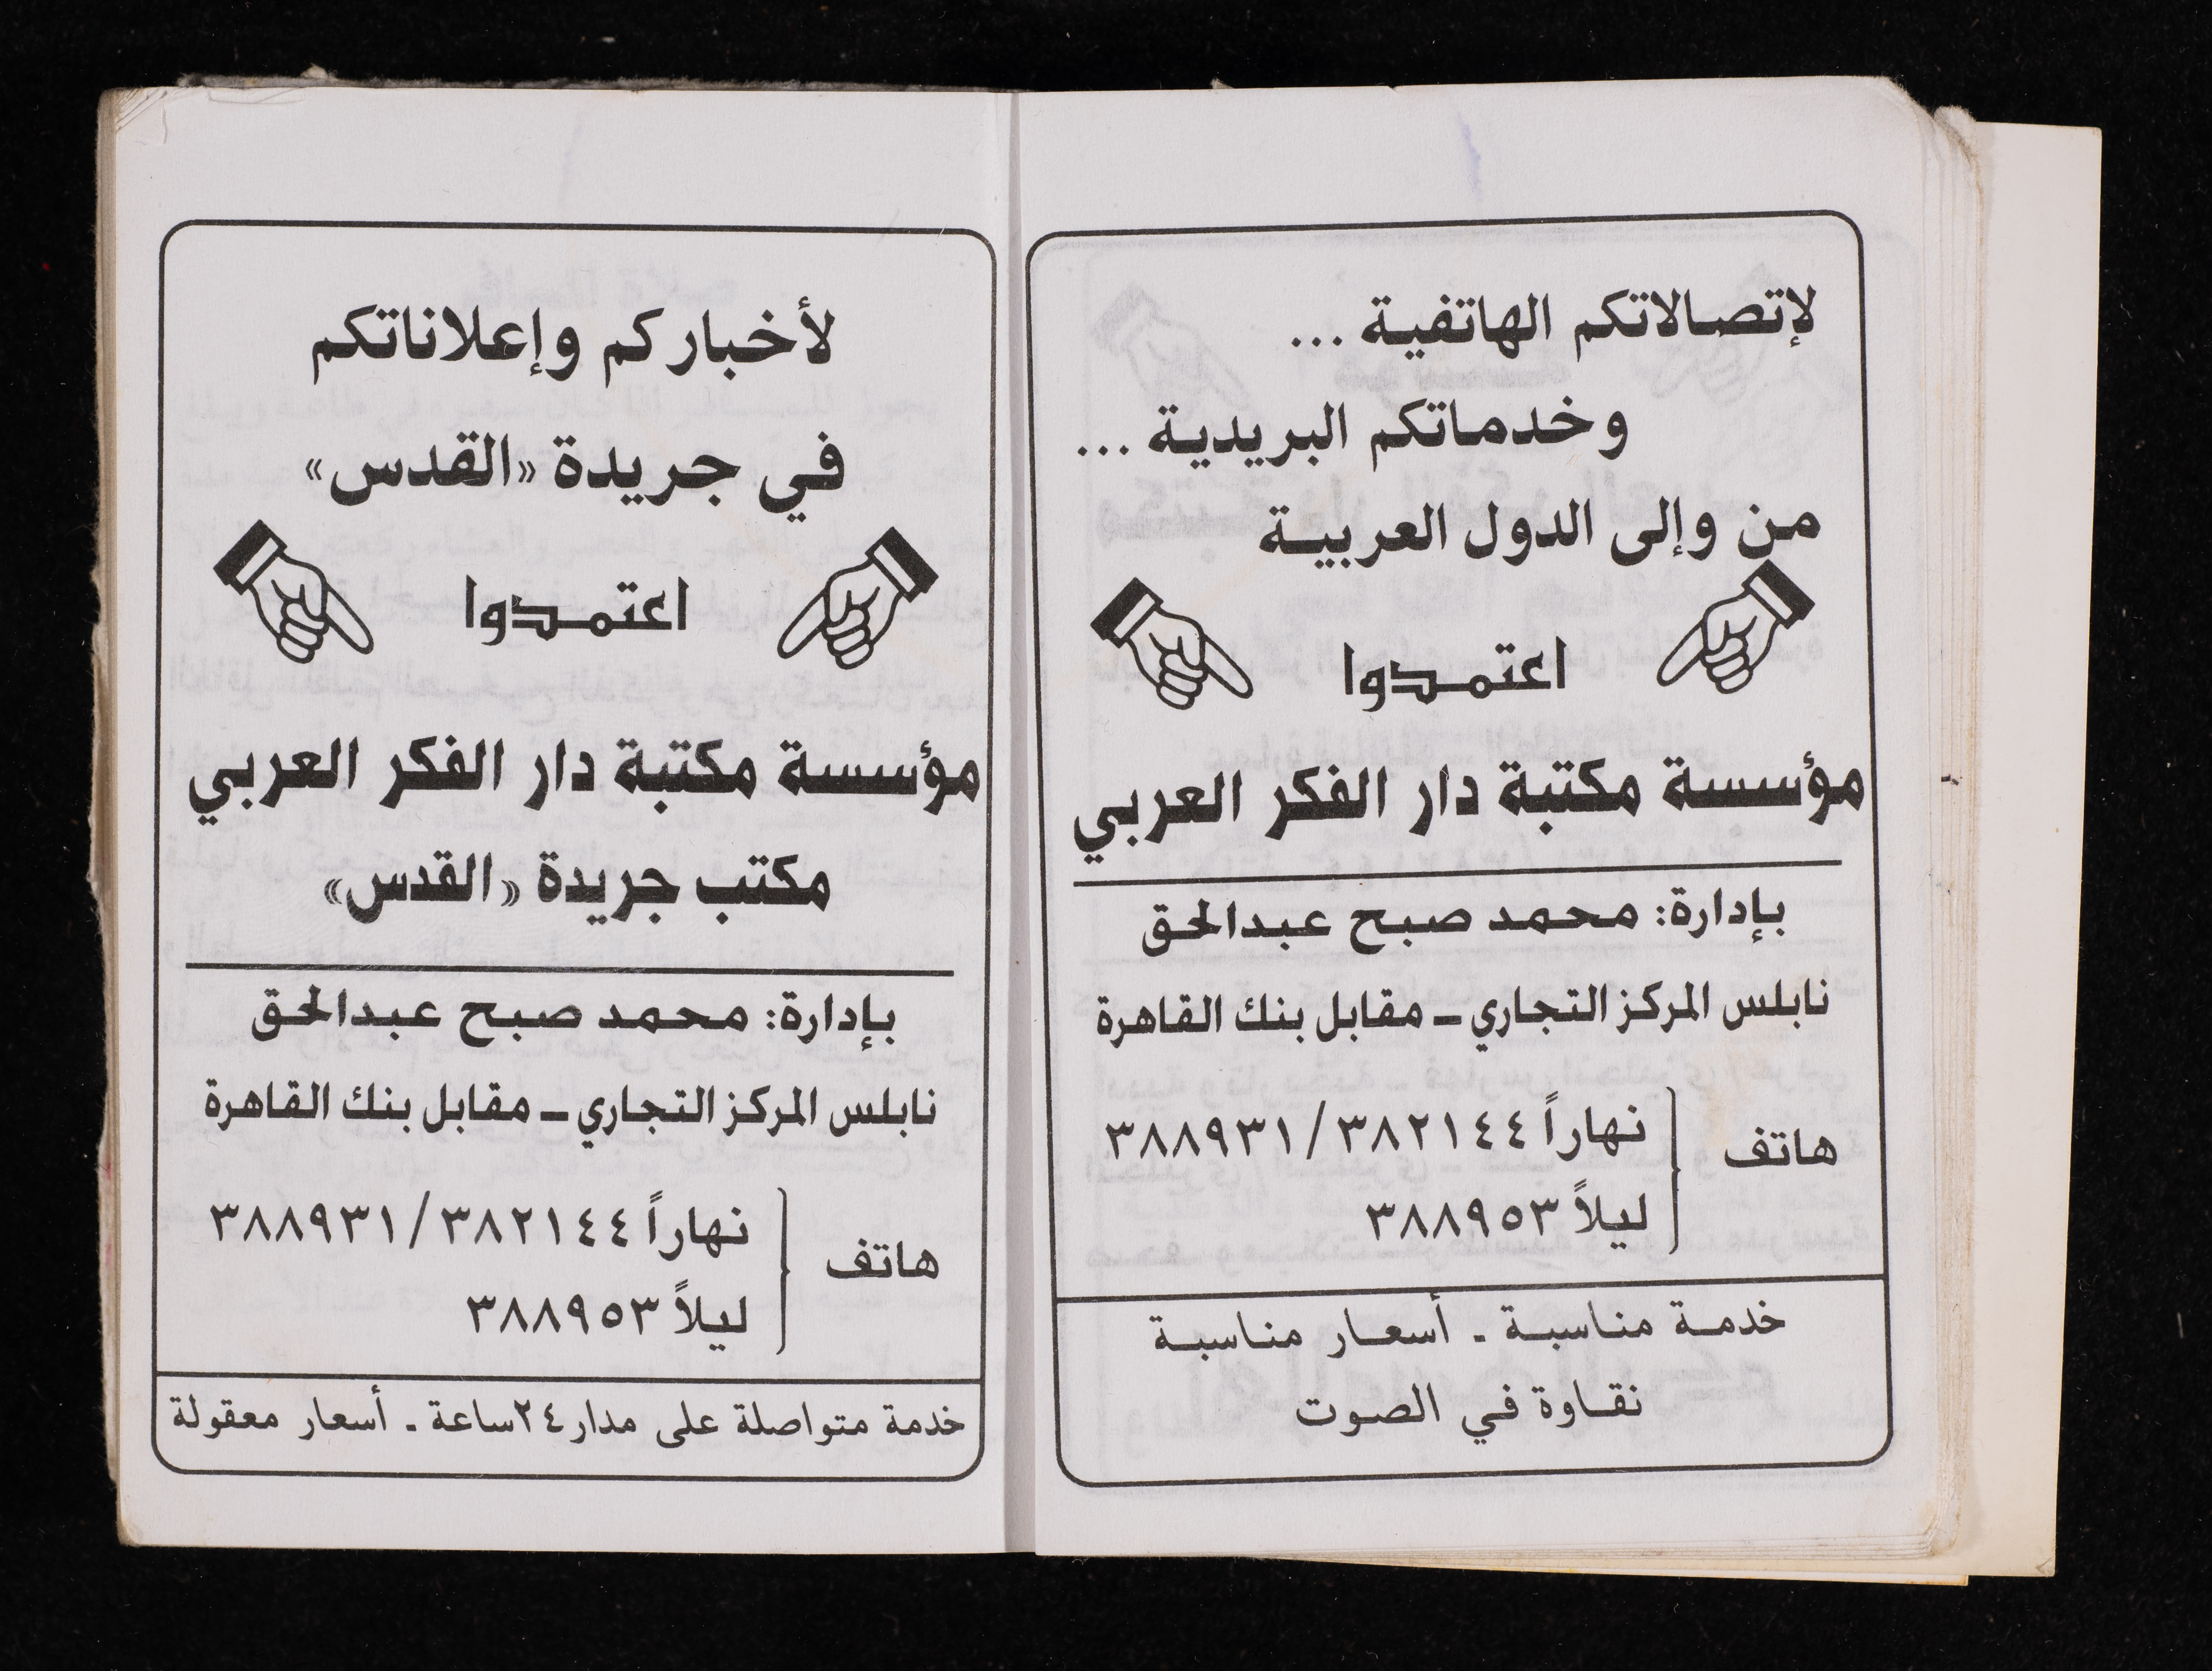 لإتصالاتكم الهاتفية ...
وخدماتكم البريدية ...
من وإلى الدول العربية
اعتمدوا
مؤسسة مكتبة دار الفكر العربي
بإدارة: محمد صبح عبدالحق
نابلس المركز التجاري - مقابل بنك القاهرة
هاتف
نهاراً ٣٨٢١٤٤/٣٨٨٩٣١
ليلاً ٣٨٨٩٥٣
خدمة مناسبة - أسعار مناسبة
نقاوة في الصوت
لأخباركم وإعلاناتكم
في جريدة «القدس»
اعتمدوا
مؤسسة مكتبة دار الفكر العربي
مكتب جريدة «القدس»
بإدارة: محمد صبح عبدالحق
نابلس المركز التجاري - مقابل بنك القاهرة
هاتف
نهاراً ٣٨٢١٤٤/٣٨٨٩٣١
ليلاً ٣٨٨٩٥٣
خدمة متواصلة على مدار ٢٤ساعة - أسعار معقولة